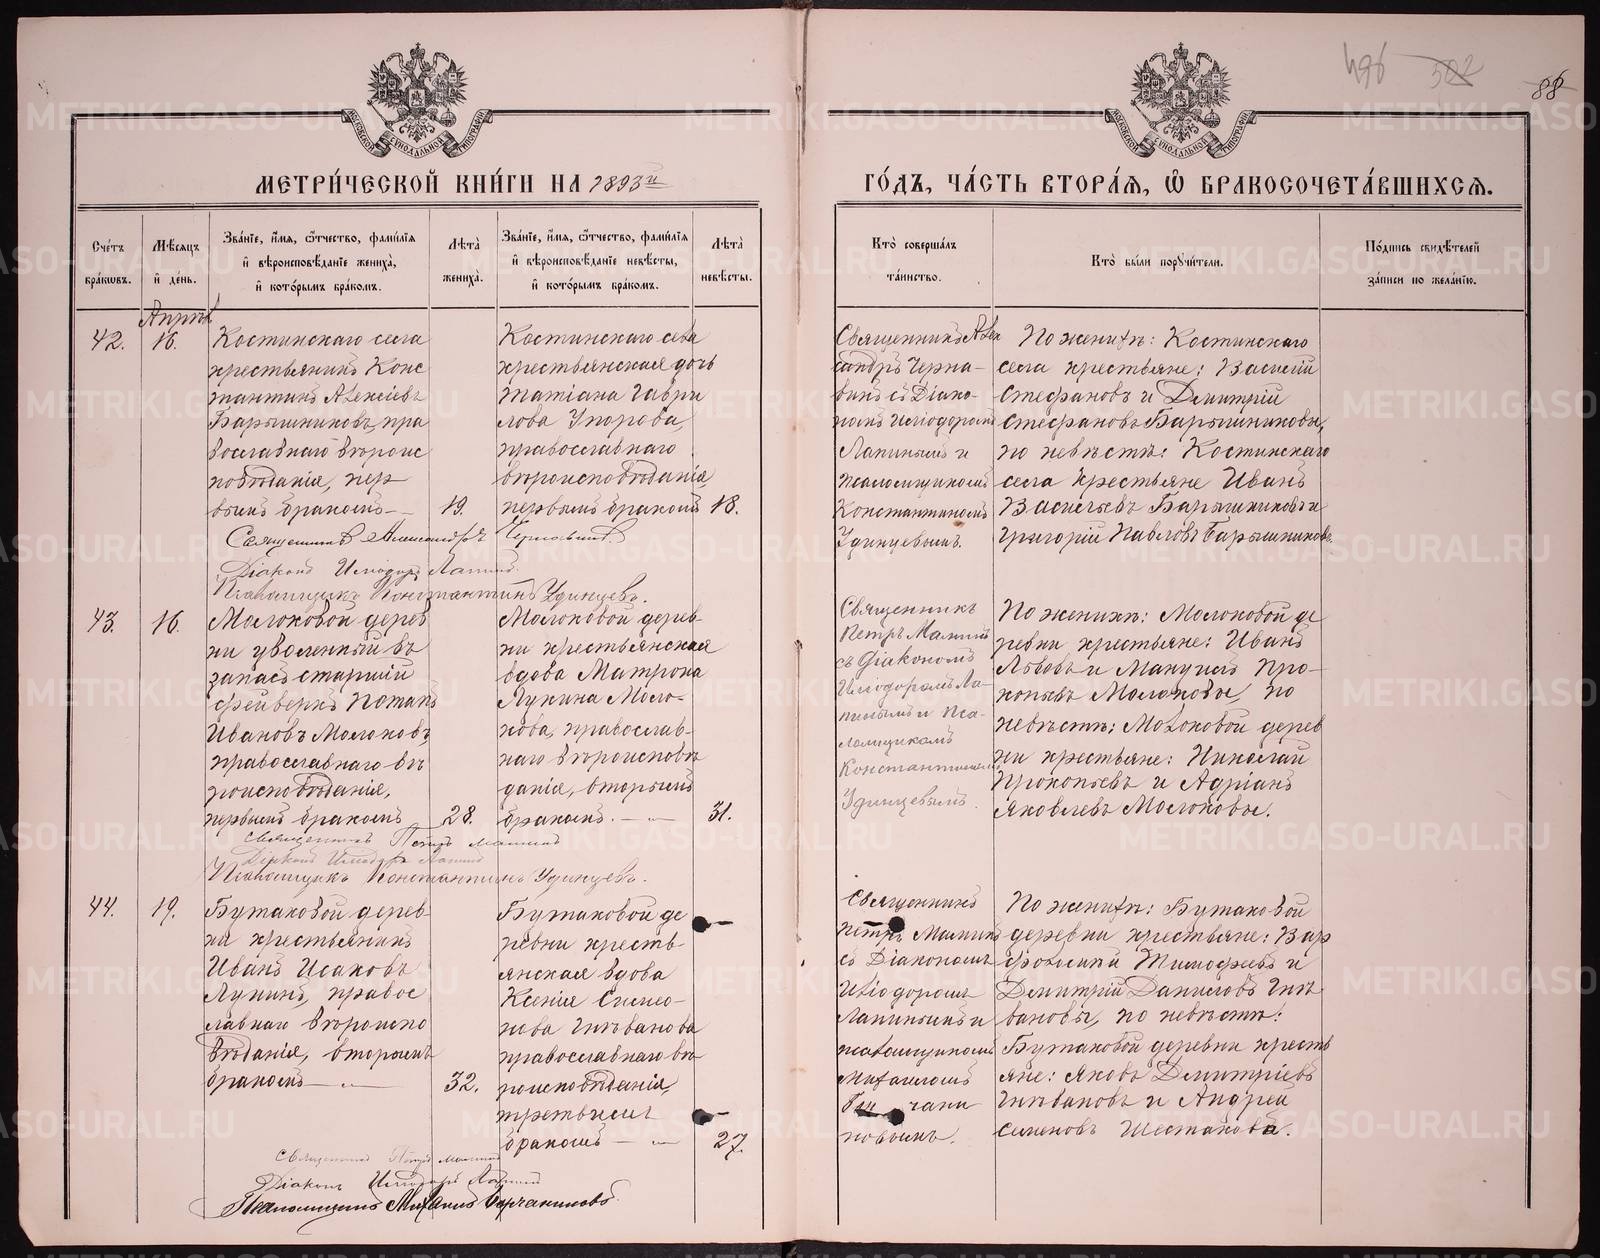 496 502 88
МЕТРИ́ЧЕСКОЙ КНИ́ГИ НА 1893й
ГО́ДЪ, ЧА́СТЬ ВТОРА́Я, Ѽ БРАКОСОЧЕТА́ВШИХСЯ.
Сче́тъ бра́кѡвъ.
Мѣ́сяцъ и҆ де́нь.
Зва́нїе, и҆́мя, ѻ҆́тчество, фами́лїя
и҆ вѣроисповѣ́данїе жениха̀,
и҆ кото́рымъ бра́комъ.
Лѣ́та жениха̀.
Зва́нїе, и҆́мя, ѻ҆́тчество, фами́лїя
и҆ вѣроисповѣ́данїе невѣ́сты,
и҆ кото́рымъ бра́комъ.
Лѣ́та невѣ́сты.
Кто̀ соверша́лъ
та́инство.
Кто̀ бы́ли поручи́тели.
По́дпись свидѣ́телей
за́писи по жела́нїю.
Апрѣль
42.
16.
Костинскаго села
крестьянинъ Конс
тантинъ Алексіевъ
Барышниковъ, пра
вославнаго вѣроис
повѣданія, пер
вымъ бракомъ
19.
Костинскаго села
крестьянская дочь
Татіана Гаври
лова Упорова,
православнаго
вѣроисповѣданія,
первымъ бракомъ
18.
Священникъ Алек
сандръ Черна-
винъ съ Діако-
номъ Иліодоромъ
Лапинымъ и
псаломщикомъ
Константиномъ
Удинцевымъ.
По женихѣ: Костинскаго
села крестьяне: Василій
Стефановъ и Димитрій
Стефановъ Барышниковы,
по невѣстѣ: Костинскаго
села крестьяне Иванъ
Васильевъ Барышниковъ и
Григорій Павловъ Барышниковъ.
Священникъ Александръ Чернавинъ
Діаконъ Иліодоръ Лапинъ.
Псаломщикъ Константинъ Удинцевъ.
43.
16.
Молоковой дерев
ни уволенный въ
запасъ старшій
фейверкъ Потапъ
Ивановъ Молоковъ,
православнаго вѣ
роисповѣданія,
первымъ бракомъ
28.
Молоковой дерев-
ни крестьянская
вдова Матрона
Лукина Моло-
кова, православ-
наго вѣроисповѣ
данія, вторымъ
бракомъ.
31.
Священникъ
Петръ Маминъ
съ Діакономъ
Иліодоромъ Ла-
пинымъ и Пса-
ломщикомъ
Константиномъ
Удинцевымъ.
По женихѣ: Молоковой де
ревни крестьяне: Иванъ
Львовъ и Мануилъ Про-
копьевъ Молоковы, по
невѣстѣ: Молоковой дерев
ни крестьяне: Николай
Прокопьевъ и Адріанъ
Яковлевъ Молоковы.
Священникъ Петръ Маминъ
Діаконъ Иліодоръ Лапинъ
Псаломщикъ Константинъ Удинцевъ.
44.
19.
Бутаковой дерев-
ни крестьянинъ
Иванъ Исаковъ
Лукинъ, правос
лавнаго вѣроиспо
вѣданія, вторымъ
бракомъ
32.
Бутаковой де
ревни кресть-
янская вдова
Ксенія Симео-
нова Гнѣванова
православнаго вѣ-
роисповѣданія,
третьимъ
бракомъ
27.
Священникъ
Петръ Маминъ
съ Діакономъ
Иліодоромъ
Лапинымъ и
псаломщикомъ
Михаиломъ
новымъ.
По женихѣ: Бутаковой
деревни крестьяне: Вар
фоломей Тимофеевъ и
Димитрій Даниловъ Гнѣ
вановы, по невѣстѣ:
Бутаковой деревни кресть
яне: Яковъ Димитріевъ
Гнѣвановъ и Андрей
Семеновъ Шестаковъ.
Священникъ Петръ Маминъ
Діаконъ Иліодоръ Лапинъ
Псаломщикъ Михаилъ